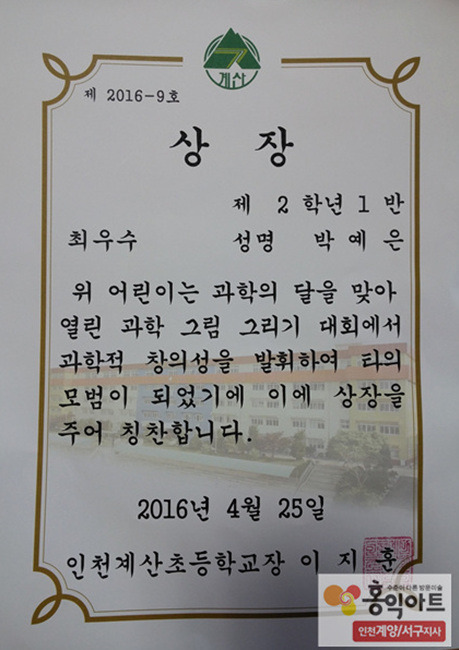 계산
제 2016-9호
상 장
제 2 학년 1 반
최우수 성명 박 예 은
위 어린이는 과학의 달을 맞아
열린 과학 그림 그리기 대회에서
과학적 창의성을 발휘하여 타의
모범이 되었기에 이에 상장을
주어 칭찬합니다.
2016년 4월 25일
인천계산초등학교장 이 지 훈
수준이 다른 방문미술
홍익아트
인천계양/서구지사